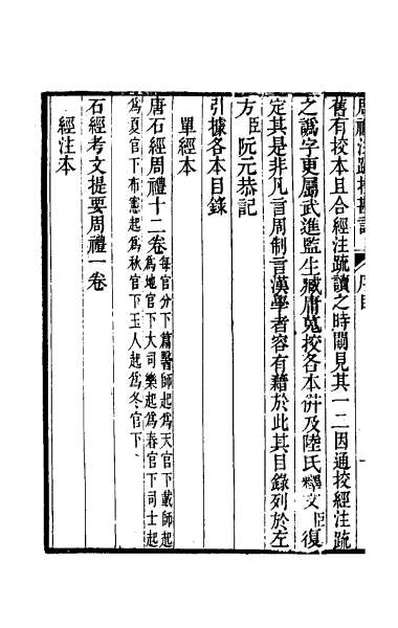 周禮注疏挍勘記 序目
舊有挍本且合經注疏讀之時闚見其一二因通挍經注疏
之譌字更屬武進監生臧庸蒐挍各本併及陸氏釋文臣復
定其是非凡言周制言漢學者容有藉於此其目錄列於左
方臣阮元恭記
引據各本目錄
單經本
唐石經周禮十二卷每官分下篇醫師起爲天官下載師起
爲地官下大司樂起爲春官下司士起
爲夏官下布憲起爲秋官下玉人起爲冬官下
石經考文提要周禮一卷
經注本